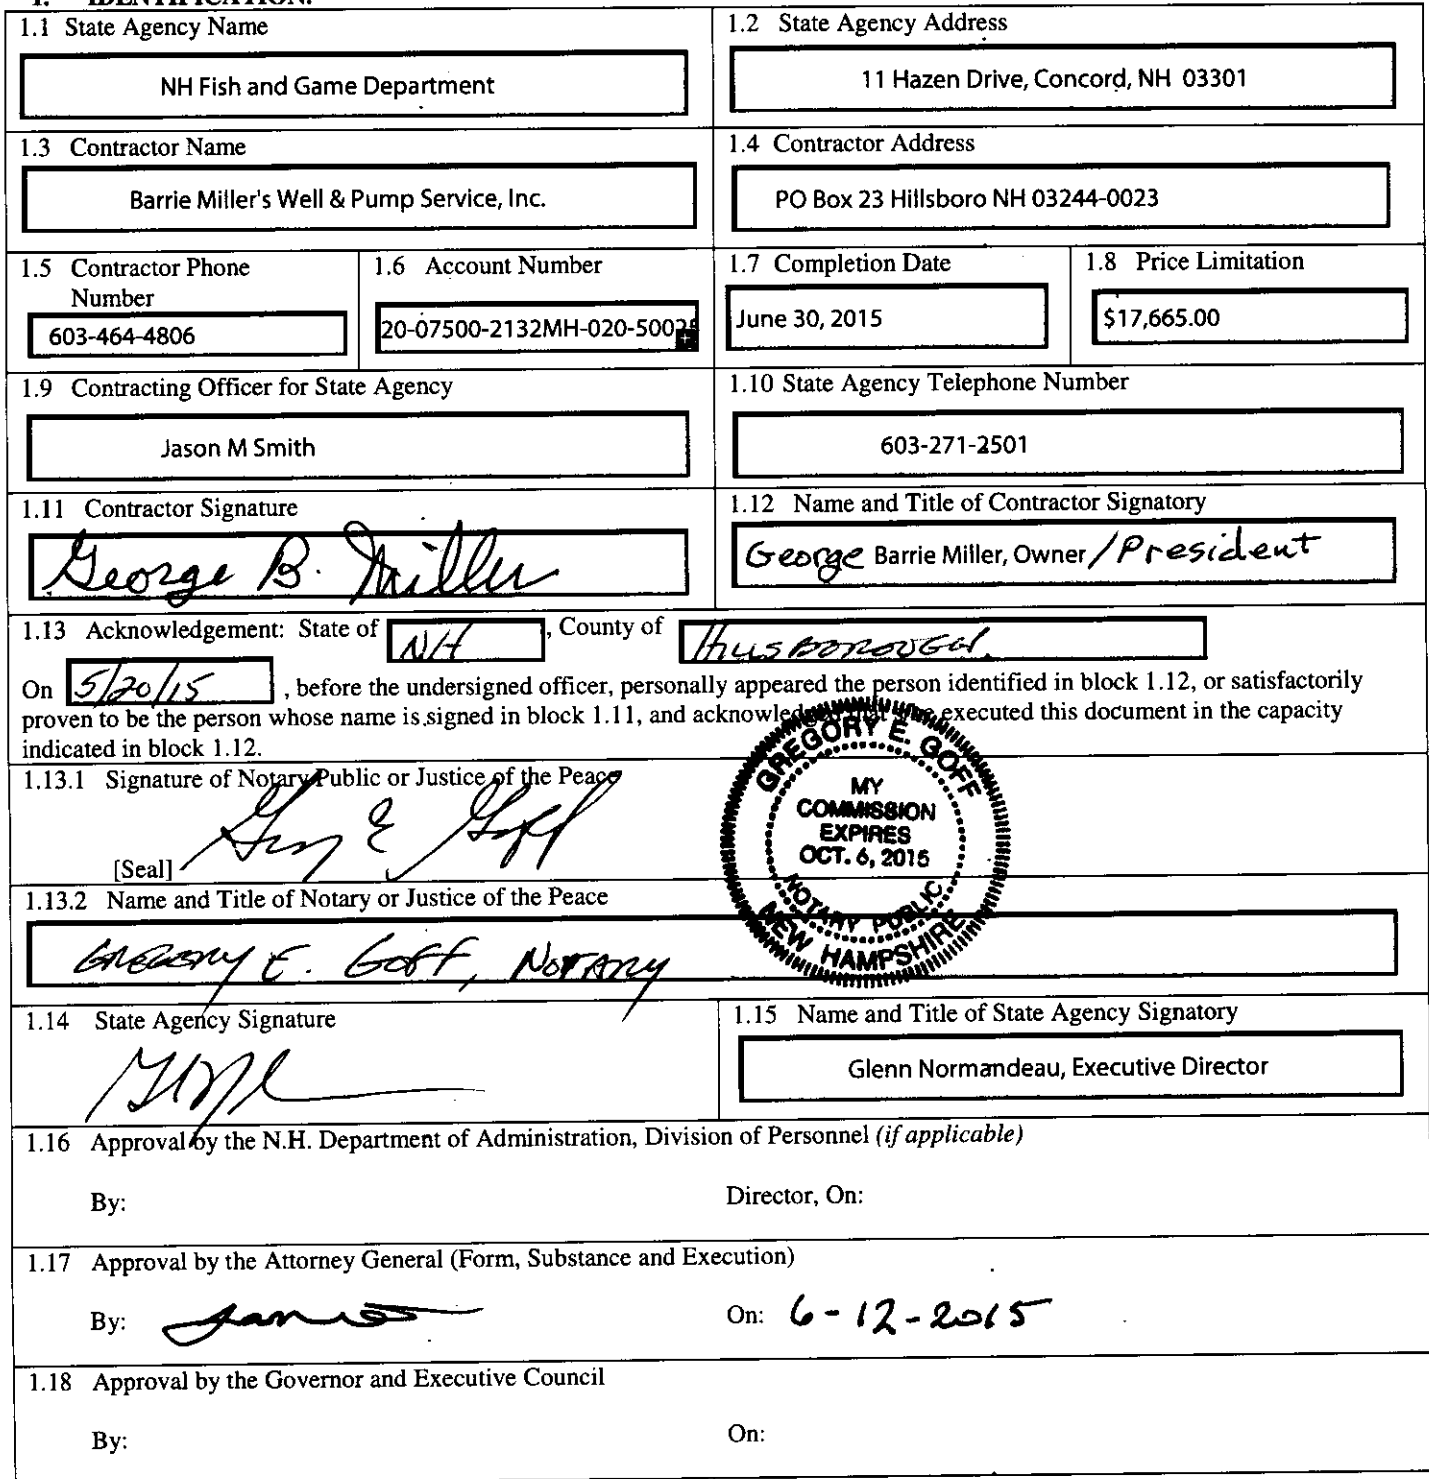 1. IDENTIFICATION.
1.1 State Agency Name
NH Fish and Game Department
1.2 State Agency Address
11 Hazen Drive, Concord, NH 03301
1.3 Contractor Name
Barrie Miller's Well & Pump Service, Inc.
1.4 Contractor Address
PO Box 23 Hillsboro NH 03244-0023
1.5 Contractor Phone
Number
603-464-4806
1.6 Account Number
20-07500-2132MH-020-50025
1.7 Completion Date
June 30, 2015
1.8 Price Limitation
$17,665.00
1.9 Contracting Officer for State Agency
Jason M Smith
1.10 State Agency Telephone Number
603-271-2501
1.11 Contractor Signature
George B. Miller
1.12 Name and Title of Contractor Signatory
George Barrie Miller, Owner / President
1.13 Acknowledgement: State of NH , County of Hillsborough
On 5/20/15 , before the undersigned officer, personally appeared the person identified in block 1.12, or satisfactorily
proven to be the person whose name is signed in block 1.11, and acknowledged that executed this document in the capacity
indicated in block 1.12.
1.13.1 Signature of Notary Public or Justice of the Peace
Greg E Goff
[Seal]
GREGORY E. GOFF
MY
COMMISSION
EXPIRES
OCT. 6, 2015
NOTARY PUBLIC
NEW HAMPSHIRE
1.13.2 Name and Title of Notary or Justice of the Peace
GREGORY E. GOFF, NOTARY
1.14 State Agency Signature
1.15 Name and Title of State Agency Signatory
Glenn Normandeau, Executive Director
1.16 Approval by the N.H. Department of Administration, Division of Personnel (if applicable)
By:
Director, On:
1.17 Approval by the Attorney General (Form, Substance and Execution)
By:
On: 6-12-2015
1.18 Approval by the Governor and Executive Council
By:
On: